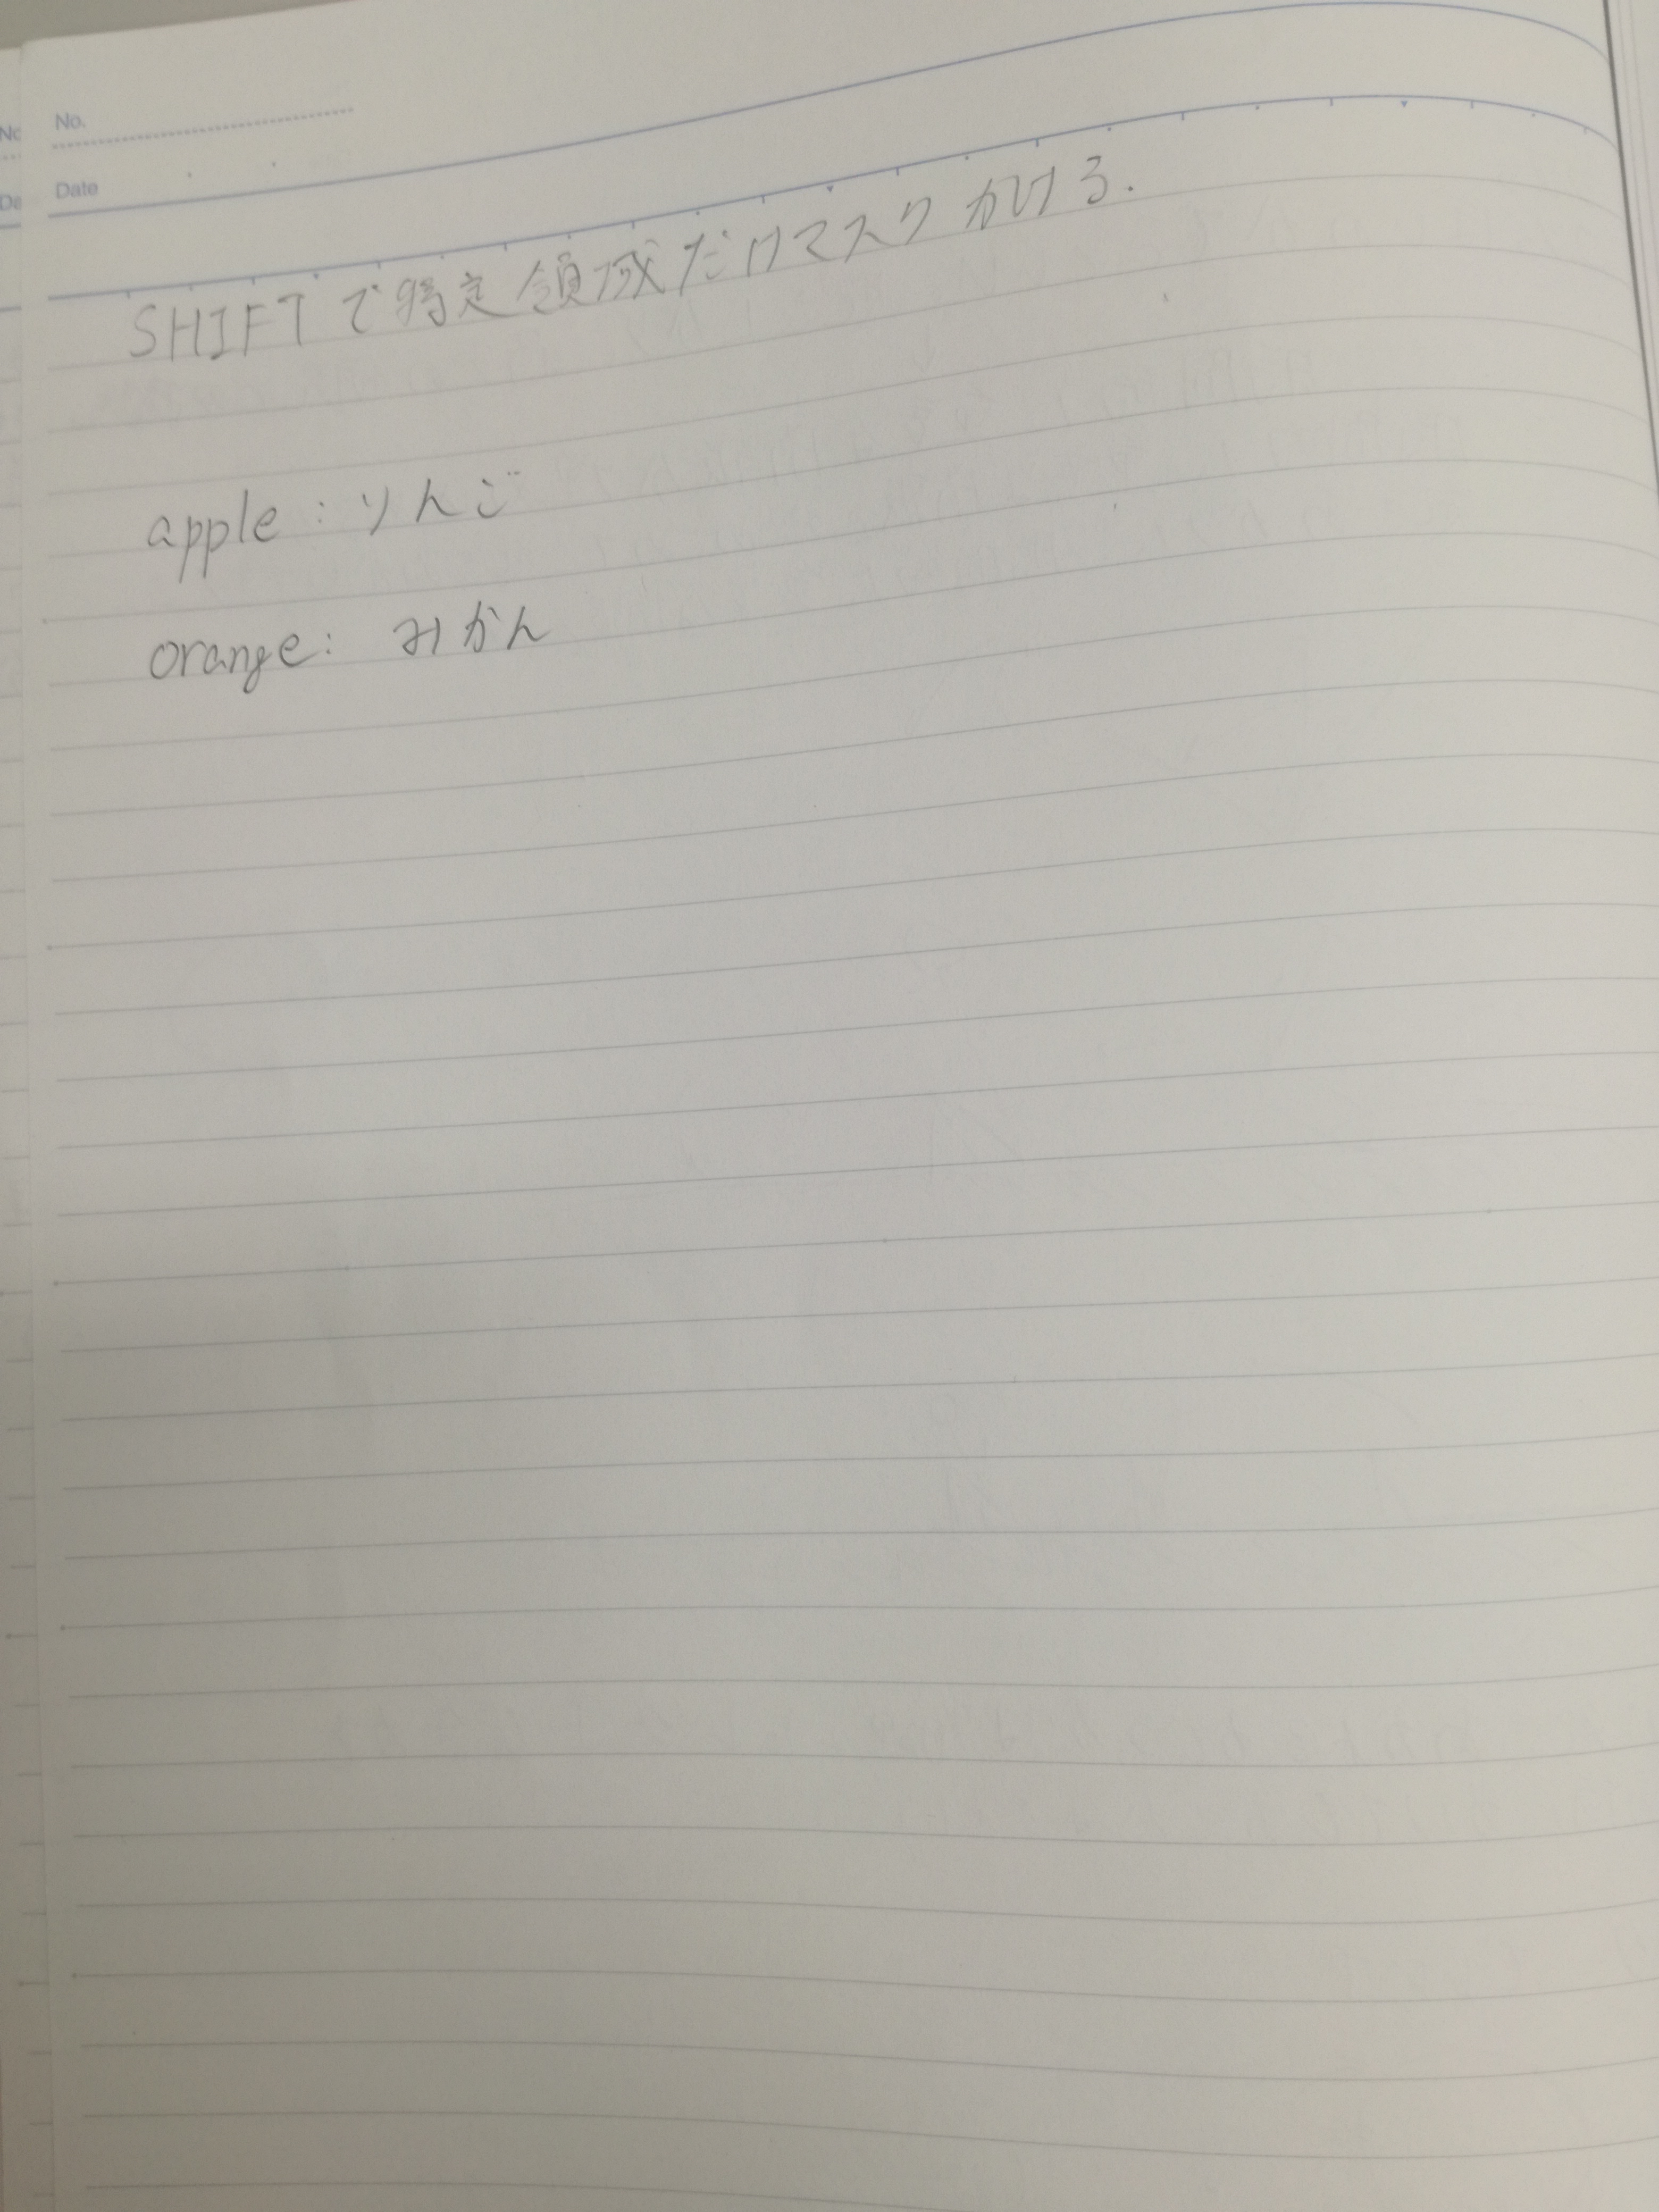 No.
Date
SHIFTで特定領域だけマスクかける.
apple : りんご
orange: みかん